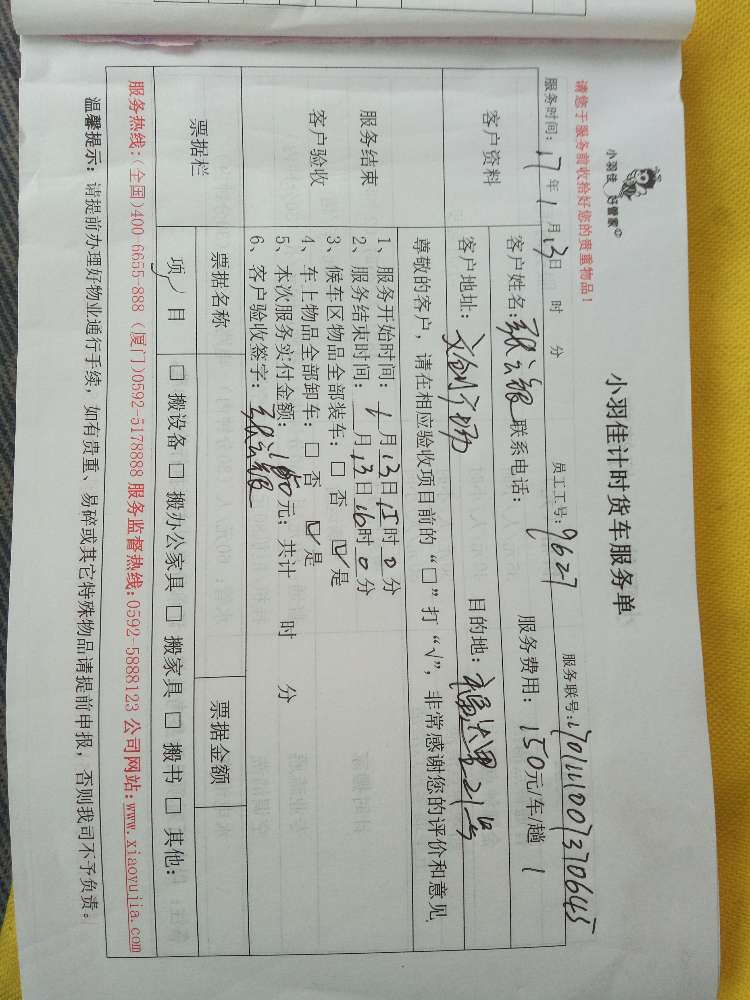 小羽佳 好管家
小羽佳计时货车服务单
请您于服务前收拾好您的贵重物品!
服务时间: 17 年 1 月 13 日 时 分 员工工号: 9627 服务联号:
客户资料
客户姓名: 联系电话: 服务费用: 150 元/车/趟 1
客户地址: 文创广场 目的地: 福达里21号
尊敬的客户, 请在相应验收项目前的“□”打“√”, 非常感谢您的评价和意见
服务结束
客户验收
1、服务开始时间: 1 月 13 日 15 时 0 分
2、服务结束时间: 1 月 13 日 16 时 0 分
3、候车区物品全部装车: □ 否 ☑ 是
4、车上物品全部卸车: □ 否 ☑ 是
5、本次服务实付金额: 150 元; 共计 时 分
6、客户验收签字:
票据栏
票据名称 票据金额
项 目 □ 搬设备 □ 搬办公家具 □ 搬家具 □ 搬书 □ 其他:
服务热线:(全国)400-6655-888 (厦门)0592-5178888 服务监督热线:0592-5888123 公司网站:www.xiaoyujia.com
温馨提示: 请提前办理好物业通行手续, 如有贵重、易碎或其它特殊物品请提前申报, 否则我司不予负责。